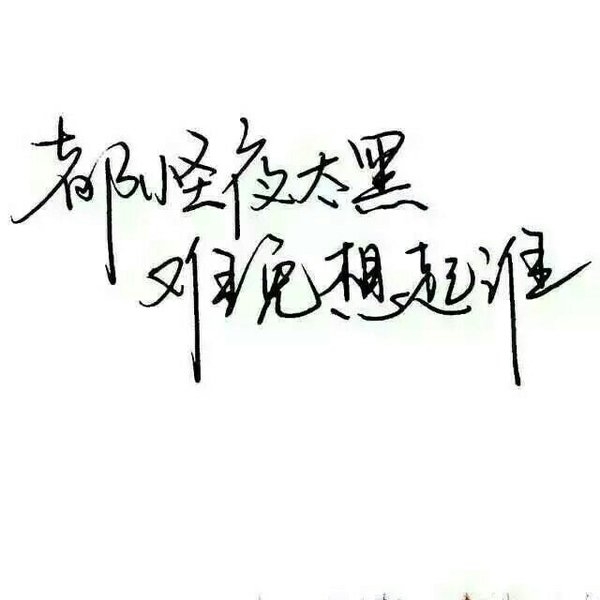 都怪夜太黑
难免想起谁